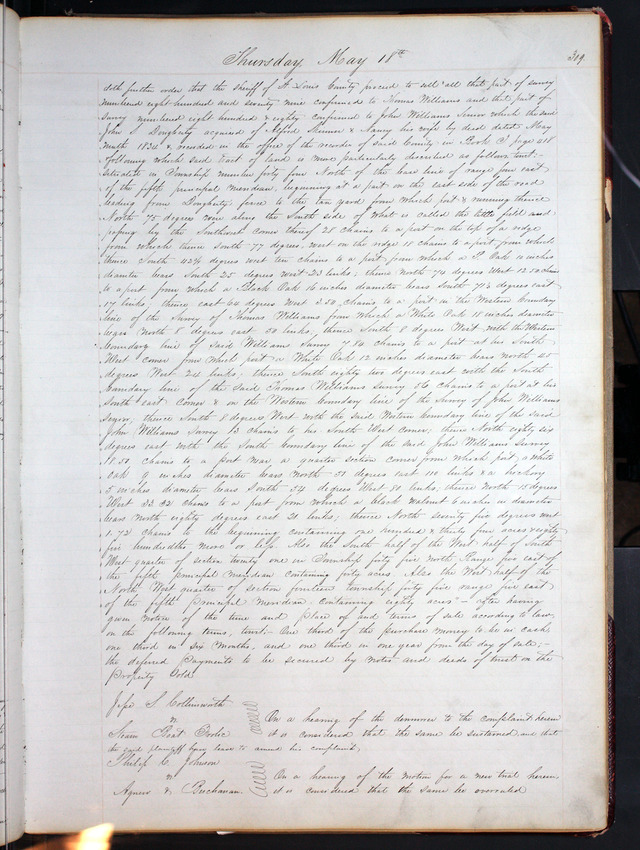 Thursday May 18th
309.
doth further order that the sheriff of St Louis County proceed to sell all that part of survey
numbered eight hundred and seventy nine confirmed to Thomas Williams and that part of
survey numbered eight hundred & eighty confirmed to John Williams Senior which the said
John S Dougherty acquired of & Nancy his wife by deed dated May
1834 & recorded in the office of the recorder of said County in Book page 418
following which said tract of land is more particularly described as follows towit:
situated in Township number forty four North of the base line of range five east
of the fifth principal meridian, beginning at a post on the east side of the road
leading from Dougherty ferry to the tan yard from which post & running thence
North 75 degrees west along the South side of what is called the little field and
passing by the Southwest corner thereof 28 chains to a post on the top of a ridge
from which thence South 77 degrees west on the ridge 18 chains to a post from which
thence South 42½ degrees west ten chains to a post from which a P. Oak 10 inches
diameter bears South 25 degrees west 23 links; thence North 74 degrees West 12.50 chains
to a post from which a Black Oak 16 inches diameter bears South 71½ degrees east
17 links, thence east 64 degrees west 3.50 chains to a post in the Western boundary
line of the Survey of Thomas Williams from which a White Oak 18 inches diameter
bears North 8 degrees east 50 links, thence South 8 degrees West with the Western
boundary line of said Williams Survey 7.80 chains to a post at his South
West corner from which post a White Oak 12 inches diameter bears North 45
degrees West 24 links; thence South eighty two degrees east with the South
boundary line of the said Thomas Williams survey 56 chains to a post at his
South east corner & on the Western boundary line of the Survey of John Williams
Senior, thence South 8 degrees West with the said Western boundary line of the said
John Williams Survey 13 chains to his South West corner; thence North eighty six
degrees east with the South boundary line of the said John Williams Survey
18.50 chains to a post near a quarter section corner from which post, a White
Oak inches diameter bears North 51 degrees east 110 links & a hickory
5 inches diameter bears South 54 degrees West 80 links, thence North 15 degrees
West 33.32 chains to a post from which a black walnut 6 inches in diameter
bears North eighty degrees east 21 links; thence North seventy five degrees west
1.72 chains to the beginning containing one hundred & thirty four acres & eighty
five hundredths more or less. Also the South half of the West half of South
West quarter of section twenty one in Township forty five north Range five east of
the fifth principal meridian containing forty acres. Also the West half of the
North West quarter of section fourteen township forty five range five east
of the fifth principal meridian, containing eighty acres – after having
given notice of the time and place of and terms of sale according to law,
on the following terms, towit: One third of the purchase money to be in cash,
one third in six months, and one third in one year from the day of sale; –
the deferred payments to be secured by notes and deeds of trust on the
Property Sold.
Jesse S Collinsworth
vs
Steam Boat
On a hearing of the demurrer to the complaint herein
it is considered that the same be sustained and that
the said plaintiff have leave to amend his complaint,
Philip C Johnson
vs
Agnew & Buchanan.
On a hearing of the motion for a new trial herein
it is considered that the same be overruled